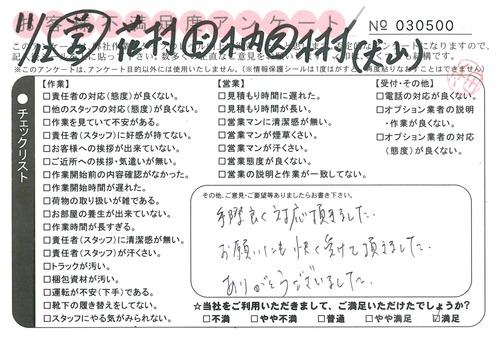 お客様不満足度アンケート
No 030500
11/2 営
(犬山)
※このアンケートは、アンケート目的以外には使用いたしません。(※情報保護シールは1度がはすと、再度貼りなおすことはできません)
チェックリスト
【作業】
□責任者の対応(態度)が良くない。
□他のスタッフの対応(態度)が良くない。
□作業を見ていて不安がある。
□責任者(スタッフ)に好感が持てない。
□お客様への挨拶が出来ていない。
□ご近所への挨拶・気遣いが無い。
□作業開始前の内容確認がなかった。
□作業開始時間が遅れた。
□荷物の取り扱いが雑である。
□お部屋の養生が出来ていない。
□作業時間が長すぎる。
□責任者(スタッフ)に清潔感が無い。
□責任者(スタッフ)が汗くさい。
□トラックが汚い。
□梱包資材が汚い。
□運転が不安(下手)である。
□靴下の履き替えをしてない。
□スタッフにやる気がみられない。
【営業】
□見積もり時間に遅れた。
□見積もり時間が長い。
□営業マンに清潔感が無い。
□営業マンが煙草くさい。
□営業マンが汗くさい。
□営業態度が良くない。
□営業の説明と作業が一致してない。
【受付・その他】
□電話の対応が良くない。
□オプション業者の説明
・作業が良くない。
□オプション業者の対応
(態度)が良くない。
その他、ご意見・ご要望等ありましたらお書き下さい。
手際良く対応頂きました。
お願いにも快く受けて頂きました。
ありがとうございました。
☆当社をご利用いただきまして、ご満足いただけたでしょうか?
□不満 □やや不満 □普通 □やや満足 ☑満足